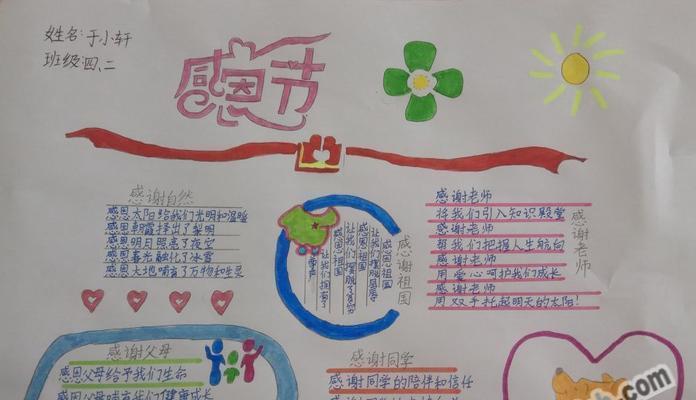 姓名:于小轩
班级:四、二
感恩节
感谢自然
感恩太阳给我们光明和温暖
感恩朝霞捧出了黎明
感恩明月照亮了夜空
感恩春光融化了冰雪
感恩大地哺育了万物和生灵
感恩祖国
让我们摆脱屈辱
感恩祖国
让我们摆脱了贫穷
感恩祖国
让我们拥有了
尊严
感谢祖国
感谢老师
将我们引入知识殿堂
感谢老师
帮我们把握人生航向
感谢老师
用爱心呵护我们成长
感谢老师
用双手托起明天的太阳!
感谢老师
感谢父母
感恩父母给予我们生命
感恩父母哺育我们健康成长
感谢同学
感谢同学的陪伴和信任